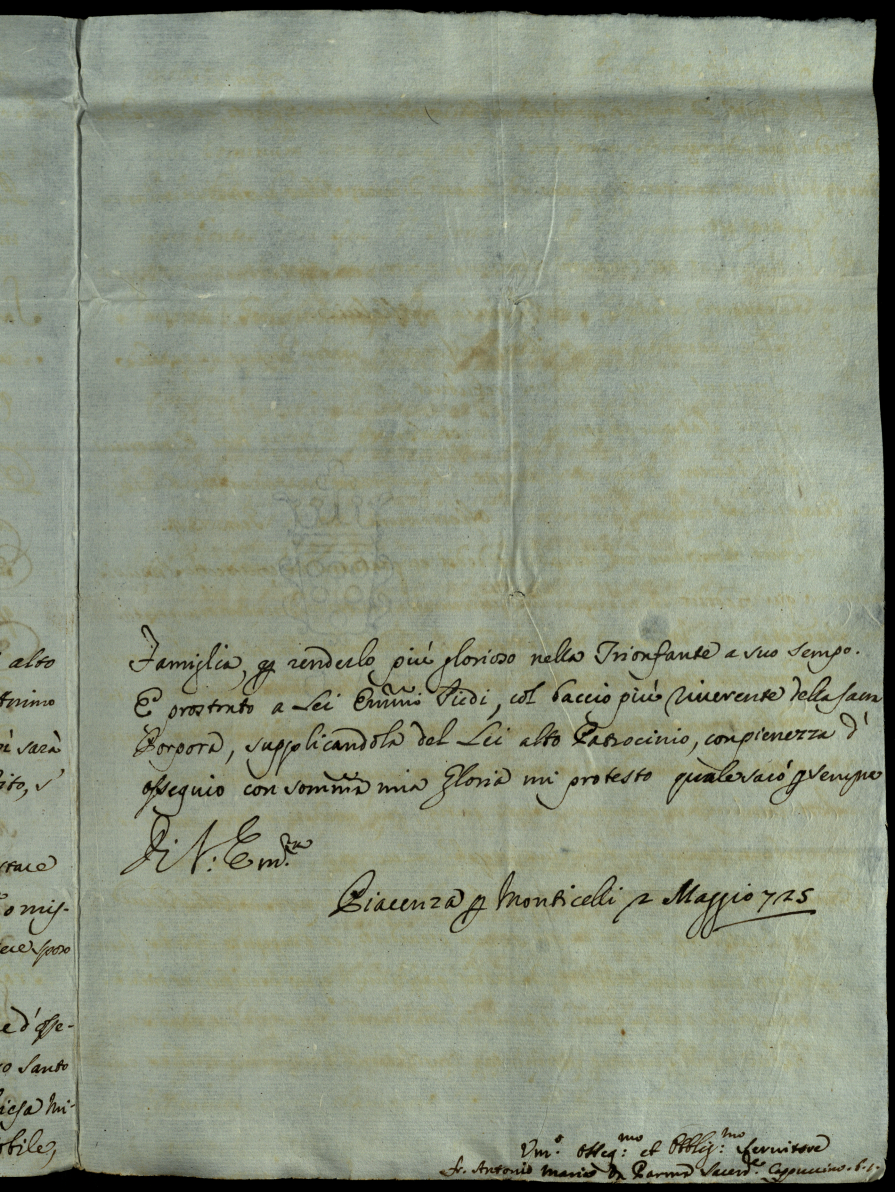 alto
sarà
Santo
Famiglia, p renderlo più glorioso nella Trionfante a suo tempo.
E prostrato a Lei Em̃mo Piedi, col baccio più riverente della Sacra
Porpora, supplicandola del Lei alto Patrocinio, con pienezza d'
ossequio con somma mia Gloria mi protesto quale sarò p sempre
Di V: Em:za
Piacenza p Monticelli 2 Maggio 725
Um:o Osseq:mo et Obblig:mo Servitore
fr. Antonio Maria da Parma Sacerd:e Cappuccino